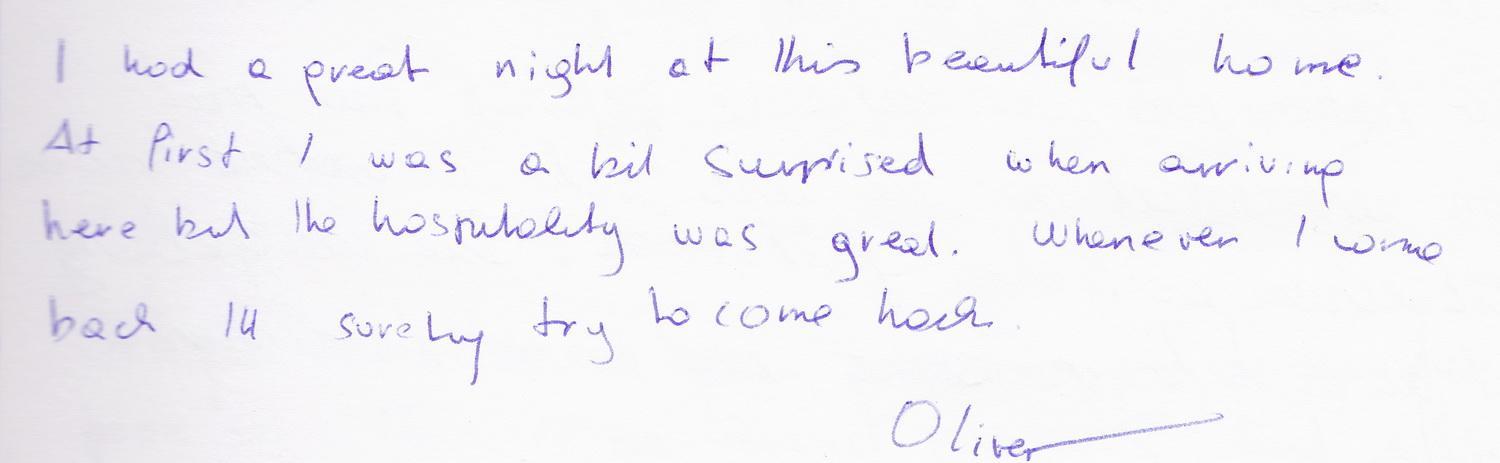 I had a great night at this beautiful home.
At first I was a bit surprised when arriving
here but the hospitality was great. Whenever I come
back I'll surely try to come back.
Oliver